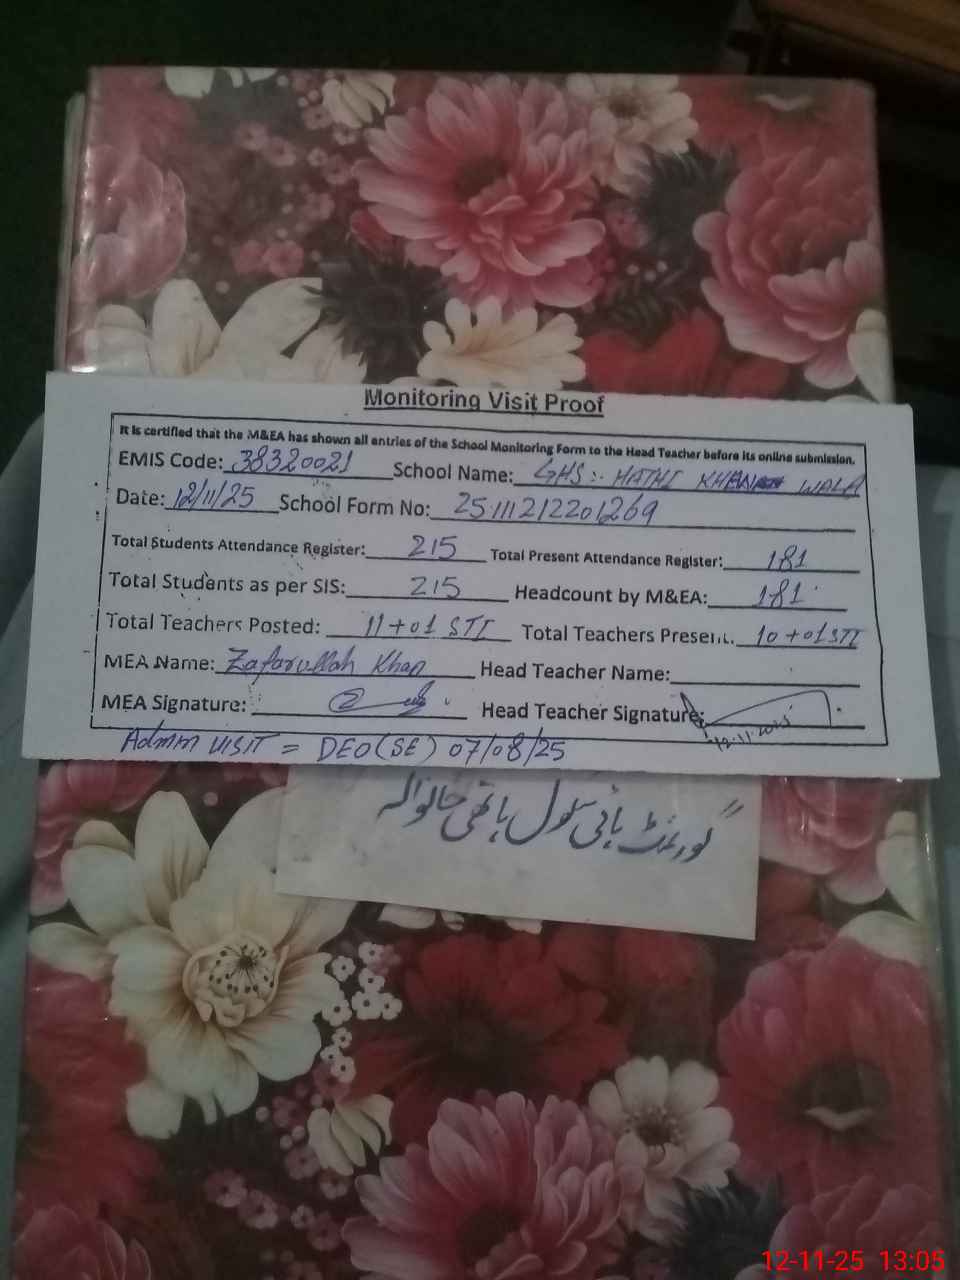 Monitoring Visit Proof
It is certified that the M&EA has shown all entries of the School Monitoring Form to the Head Teacher before its online submission.
EMIS Code: 38320021 School Name: GHS:- HATHI KHANA WALA
Date: 12/11/25 School Form No: 2511121220 1269
Total Students Attendance Register: 215 Total Present Attendance Register: 181
Total Students as per SIS: 215 Headcount by M&EA: 181
Total Teachers Posted: 11+01 STI Total Teachers Present: 10+01 STI
MEA Name: Zafarullah Khan Head Teacher Name:
MEA Signature: Head Teacher Signature:
12-11-2025
Admin VISIT = DEO(SE) 07/08/25
گورنمنٹ ہائی سکول ہاتھی خانوالہ
12-11-25 13:05